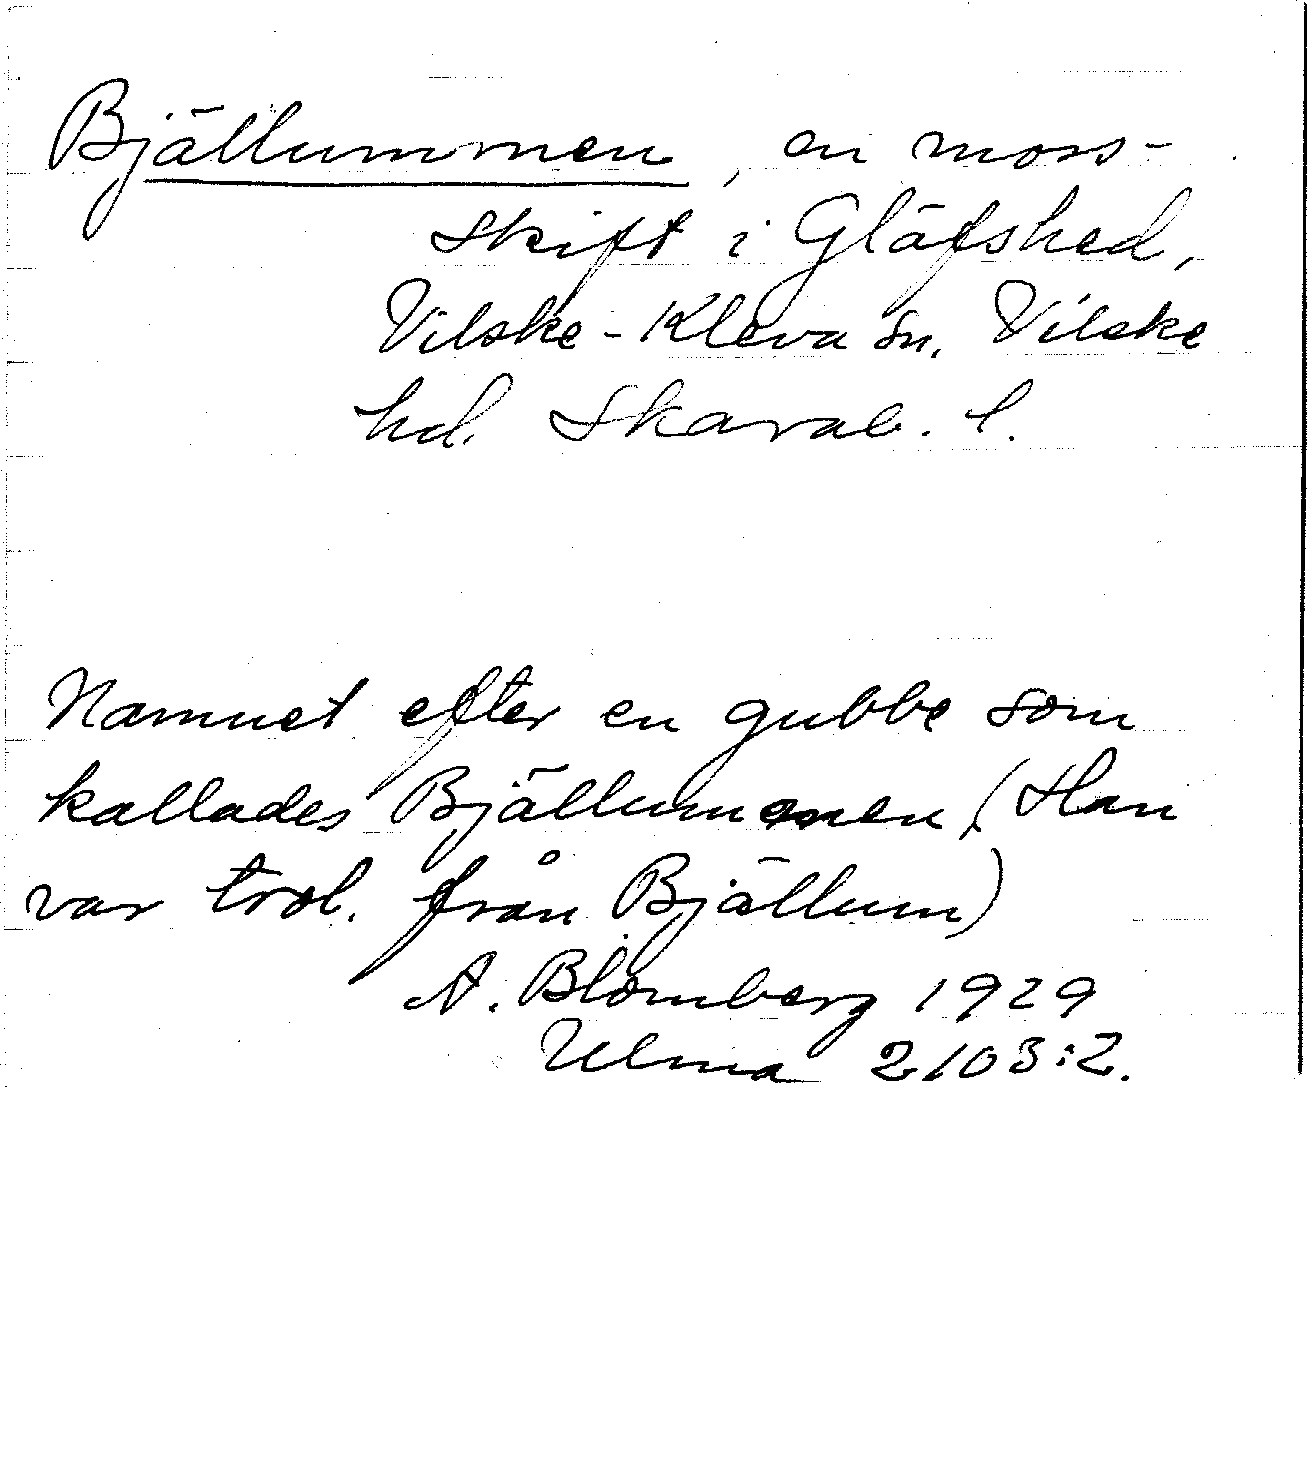 Bjällummen, en moss-
skift i Gläfshed,
Vilske-Kleva sn. Vilske
hd. Skarab. l.
Namnet efter en gubbe som
kallades Bjällummen (Han
var trol. från Bjällum)
A. Blomberg 1929
Ulma 2103:2.